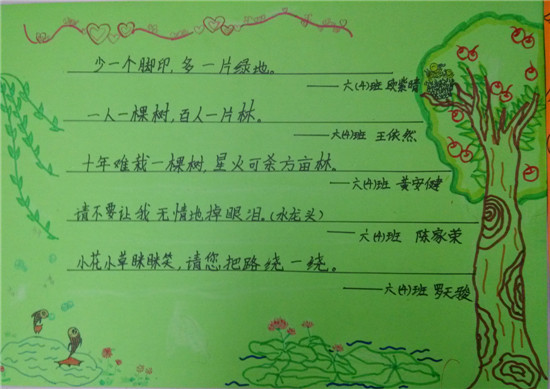 少一个脚印，多一片绿地。
——六(4)班 欧紫晴
一人一棵树，百人一片林。
——六(4)班 王依然
十年难栽一棵树，星火可杀万亩林。
——六(4)班 黄安健
请不要让我无情地掉眼泪。(水龙头)
——六(4)班 陈家荣
小花小草眯眯笑，请您把路绕一绕。
——六(4)班 罗天骏